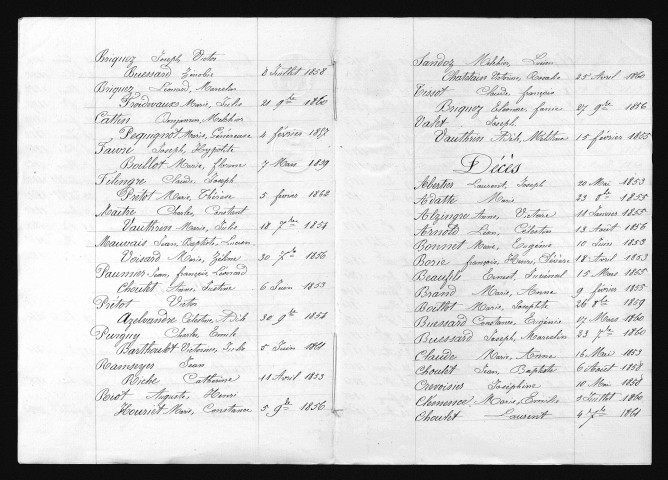 Briquez Joseph Victor
Bussard Zénobie 8 Juillet 1858
Briquez Léonard, Marcelin
Froidevaux Marie, Julie 21 9bre 1860
Cattin Benjamin, Melchior
Pequignot Marie, Généreuse 4 février 1853
Faivre Joseph, Hyppolite
Boillot Marie, florine 7 Mars 1859
Filengre Claude, Joseph
Prétot Marie, Thérèse 5 février 1862
Maitre Charles, Constant
Vauthrin Marie, Julie 18 7bre 1854
Mauvais Jean, Baptiste, Lucien
Voisard Marie, Zéline 30 7bre 1856
Paumier Jean, françois, Léonard
Choulet Anne, Justine 6 Juin 1853
Prétot Victor
Azelvandre Célestine, Adèle 30 9bre 1854
Puvigny Charles Emile
Barthoulot Victorine, Julie 5 Juin 1861
Ramseyer Jean
Riche Catherine 11 Avril 1853
Riot Auguste, Henri
Houriet Marie, Constance 5 9bre 1856
Sandoz Melchior, Lucien
Chatelain Victorine, Rosalie 25 Avril 1860
Tissot Claude, françois
Briquez Eléonore, fanie 27 9bre 1856
Valet Joseph
Vauthrin Adèle, Melitine 15 février 1855
Décès
Abertier Laurent, Joseph 20 Mai 1853
Adatte Marie 23 8bre 1855
Alzingre Anne, Victoire 11 Janvier 1855
Arnold Léon, Célestin 13 Août 1856
Bonnet Marie, Eugénie 10 Juin 1853
Bone françois, Henri, Désiré 18 Avril 1853
Beaufils Ernest, Juvénal 15 Mars 1855
Brand Marie, Anne 9 février 1855
Boillot Marie, Josephte 26 8bre 1859
Bussard Constance, Eugénie 17 Mars 1860
Bussard Joseph, Marcelin 23 7bre 1860
Claude Marie, Anne 16 Mai 1853
Choulet Jean Baptiste 6 Août 1858
Crevoisier Joséphine 10 Mai 1858
Clémence Marie, Emilie 5 Juillet 1860
Choulet Laurent 4 7bre 1861